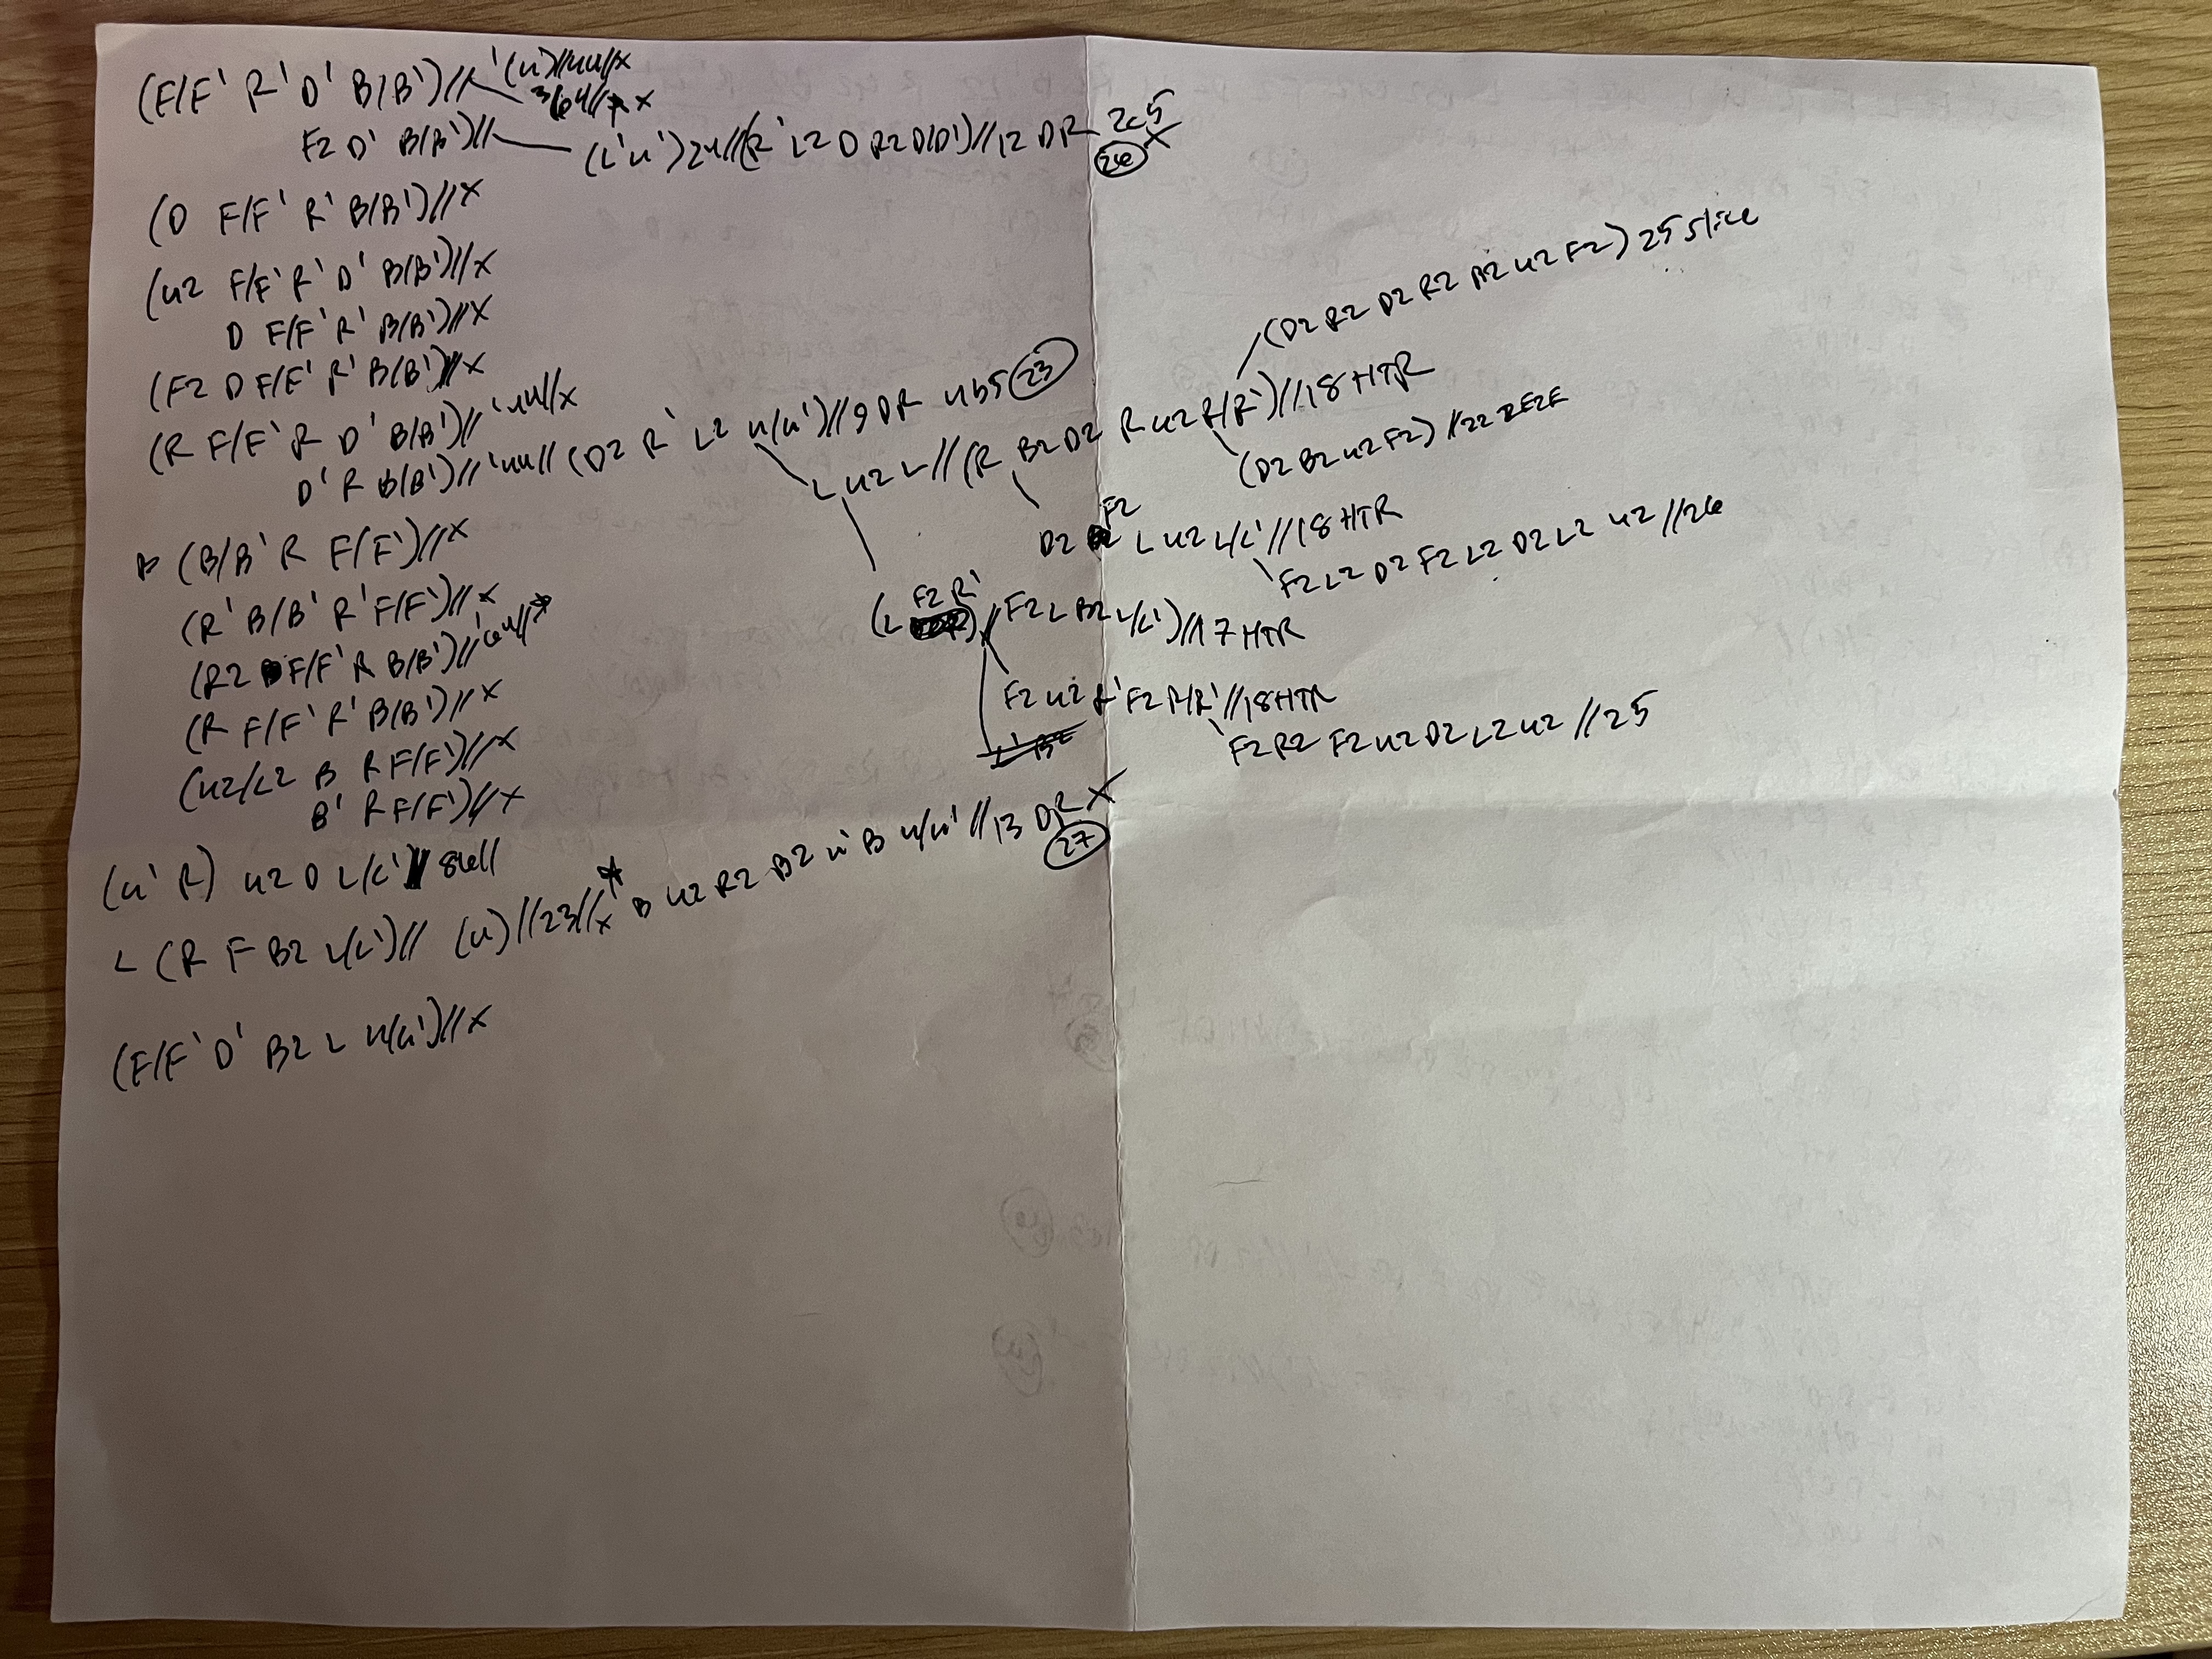 (F/F' R' D' B(B')//
'(u)//4u//x
3/6u// x
F2 D' B(B')//
(L'u')2u//(R' L2 D R2 D(D')//12 DR 2c5
26 X
(D F/F' R' B(B')//X
(u2 F/F' R' D' B(B')//X
D F/F' R' B(B')//X
(F2 D F/F' R' B(B')//X
(R F/F' R D' B(B')//'4u//x
D' R B(B')//'4u//(D2 R' L2 u(u')//9 DR 4b5 23
L u2 L//(R B2 D2 R u2 R(R')//18 HTR
(D2 R2 D2 R2 B2 u2 F2) 25 slice
(D2 B2 u2 F2) //22 2E2E
D2 F2 L u2 L/L'//18 HTR
F2 L2 D2 F2 L2 D2 L2 u2 //26
(L F2 R')//F2 L B2 L(L')//17 HTR
F2 u2 R' F2 R(R'//18 HTR
F2 R2 F2 u2 D2 L2 u2 //25
B (B/B' R F(F')//X
(R' B/B' R' F(F')//X
(R2 F/F' R B(B')//'6u//
(R F/F' R' B(B')//X
(u2/L2 B R F(F')//X
B' R F(F')//X
(u' R) u2 D L/L' 8ell
L (R F B2 L(L')// (u)//23//x * B u2 R2 B2 u' B u/u' //13 DR X
27
(F/F' D' B2 L u(u')//X